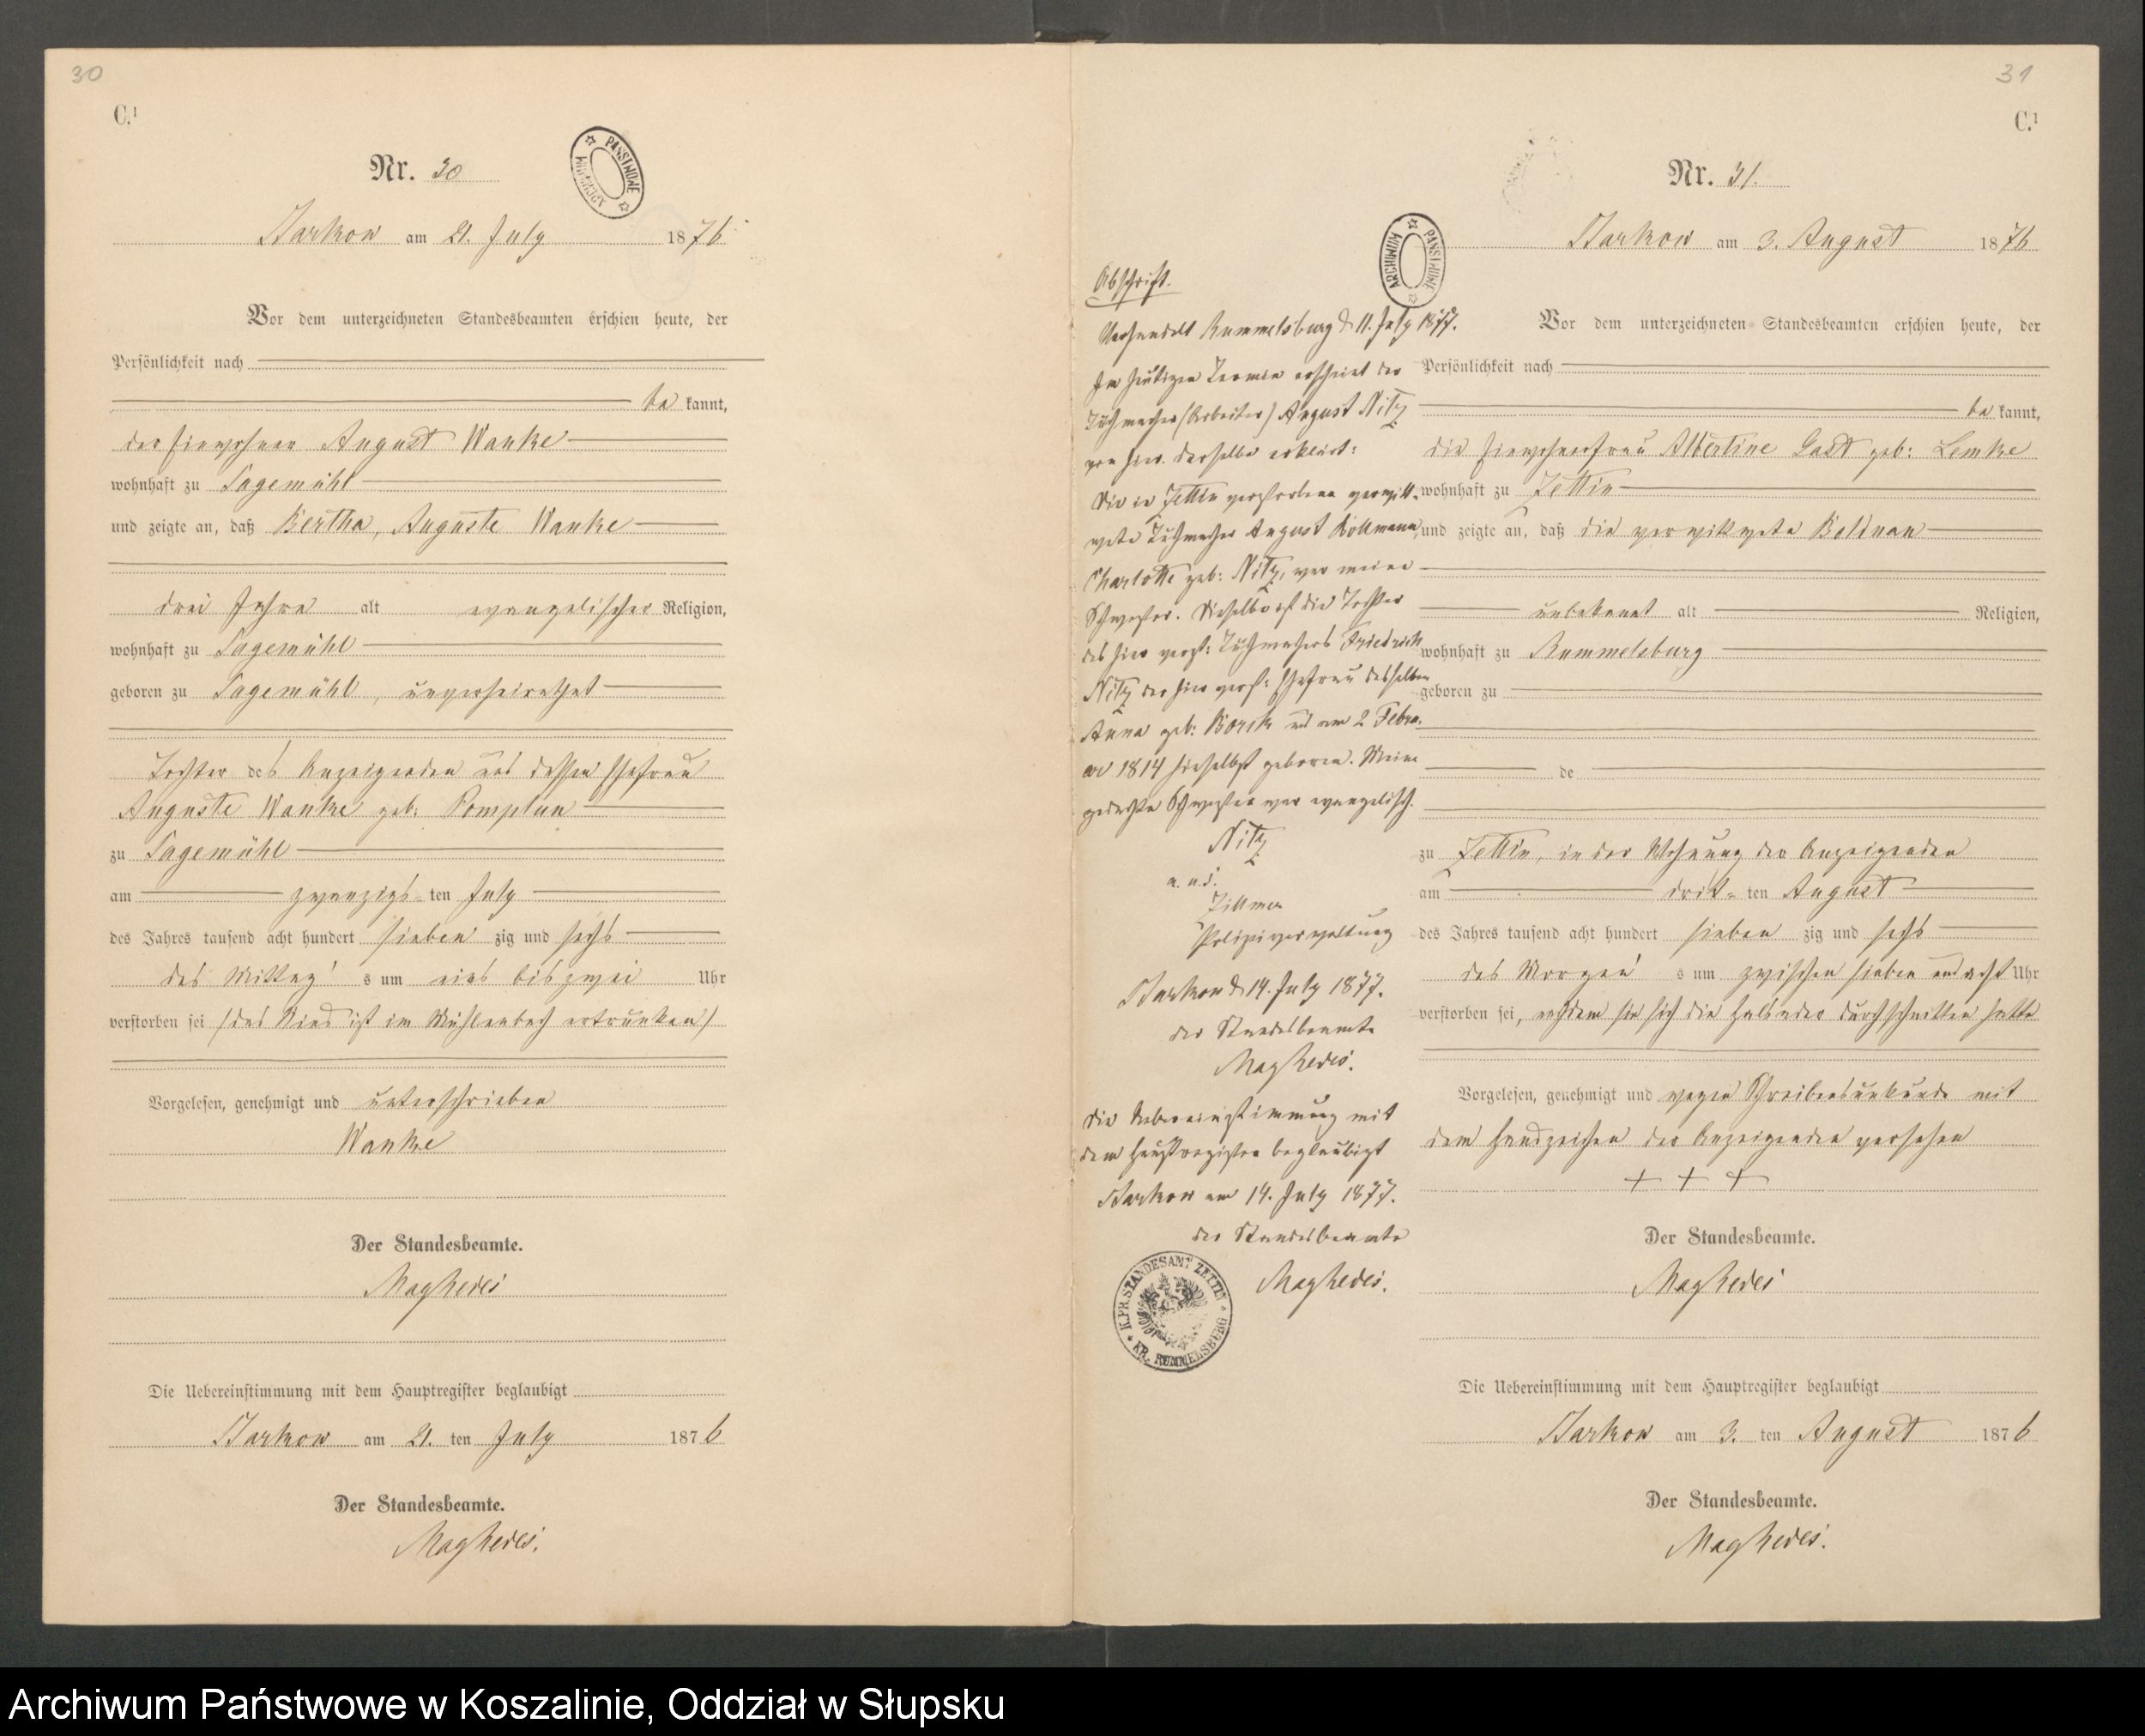 30
C.¹
Nr. 30
ARCHIWUM PAŃSTWOWE
Barkow am 21. July 1876
Vor dem unterzeichneten Standesbeamten erschien heute, der
Persönlichkeit nach
be kannt,
der Einwohner August Wanke
wohnhaft zu Sagemühl
und zeigte an, daß Bertha, Auguste Wanke
drei Jahre alt evangelischer Religion,
wohnhaft zu Sagemühl
geboren zu Sagemühl, unverheirathet
Tochter des Anzeigenden und dessen Ehefrau
Auguste Wanke geb: Pomplun
zu Sagemühl
am zwanzigs-ten July
des Jahres tausend acht hundert sieben zig und sechs
des Mittag's um eins bis zwei Uhr
verstorben sei (das Kind ist im Mühlenbach ertrunken)
Vorgelesen, genehmigt und unterschrieben
Wanke
Der Standesbeamte.
Die Uebereinstimmung mit dem Hauptregister beglaubigt
Barkow am 21. ten July 1876
Der Standesbeamte.
31
C.¹
Nr. 31.
ARCHIWUM PAŃSTWOWE
Barkow am 3. August 1876
Vor dem unterzeichneten Standesbeamten erschien heute, der
Persönlichkeit nach
be kannt,
die Einwohnerfrau Albertine Gast geb: Lemke
wohnhaft zu Zettin
und zeigte an, daß die verwittwete Boldman
unbekannt alt Religion,
wohnhaft zu Rummelsburg
geboren zu
de
zu Zettin, in der Wohnung der Anzeigenden
am drit-ten August
des Jahres tausend acht hundert sieben zig und sechs
des Morgen's um zwischen sieben und acht Uhr
verstorben sei, nachdem sie sich die Halsader durchschnitten hatte
Vorgelesen, genehmigt und wegen Schreibensunkunde mit
dem Handzeichen der Anzeigenden versehen
+ + +
Der Standesbeamte.
Die Uebereinstimmung mit dem Hauptregister beglaubigt
Barkow am 3. ten August 1876
Der Standesbeamte.
Abschrift.
Verhandelt Rummelsburg d 11. July 1877.
Im heutigen Termin erscheint der
Tuchmacher (Arbeiter) August Nitz
von hier. Derselbe erklärt:
Die in Zettin verstorbene verwitt-
wete Tuchmacher August Boldmann,
Charlotte geb: Nitz, war meine
Schwester. Dieselbe ist die Tochter
des hier verst: Tuchmachers Friedrich
Nitz der hier verst: Ehefrau desselben
Anna geb: Borck und am 2 Febru-
ar 1814 hieselbst geboren. Meine
gedachte Schwester war evangelisch.
Nitz
a. u. s.
Zillmer
Polizeiverwaltung
Barkow d 14. July 1877.
der Standesbeamte
Die Uebereinstimmung mit
dem Hauptregister beglaubigt
Barkow am 14. July 1877.
der Standesbeamte
K. PR. STANDESAMT ZETTIN
KR. RUMMELSBURG
Archiwum Państwowe w Koszalinie, Oddział w Słupsku